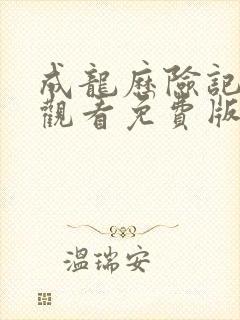 成龍歷險記
觀看免費版
溫瑞安